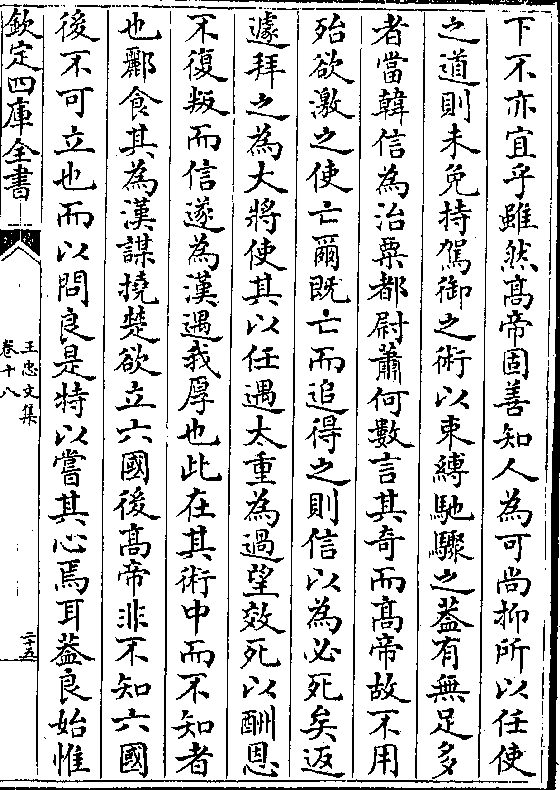 下不亦宜乎雖然高帝固善知人為可尚抑所以任使
之道則未免持駕御之術以束縛馳驟之蓋有無足多
者當韓信為治粟都尉蕭何數言其奇而高帝故不用
殆欲激之使亡爾既亡而追得之則信以為必死矣返
遽拜之為大將使其以任遇太重為過望效死以酬恩
不復叛而信遂為漢遇我厚也此在其術中而不知者
也酈食其為漢謀撓楚欲立六國後高帝非不知六國
後不可立也而以問良是特以嘗其心焉耳蓋良始惟
欽定四庫全書
王忠文集
卷十八
二十五